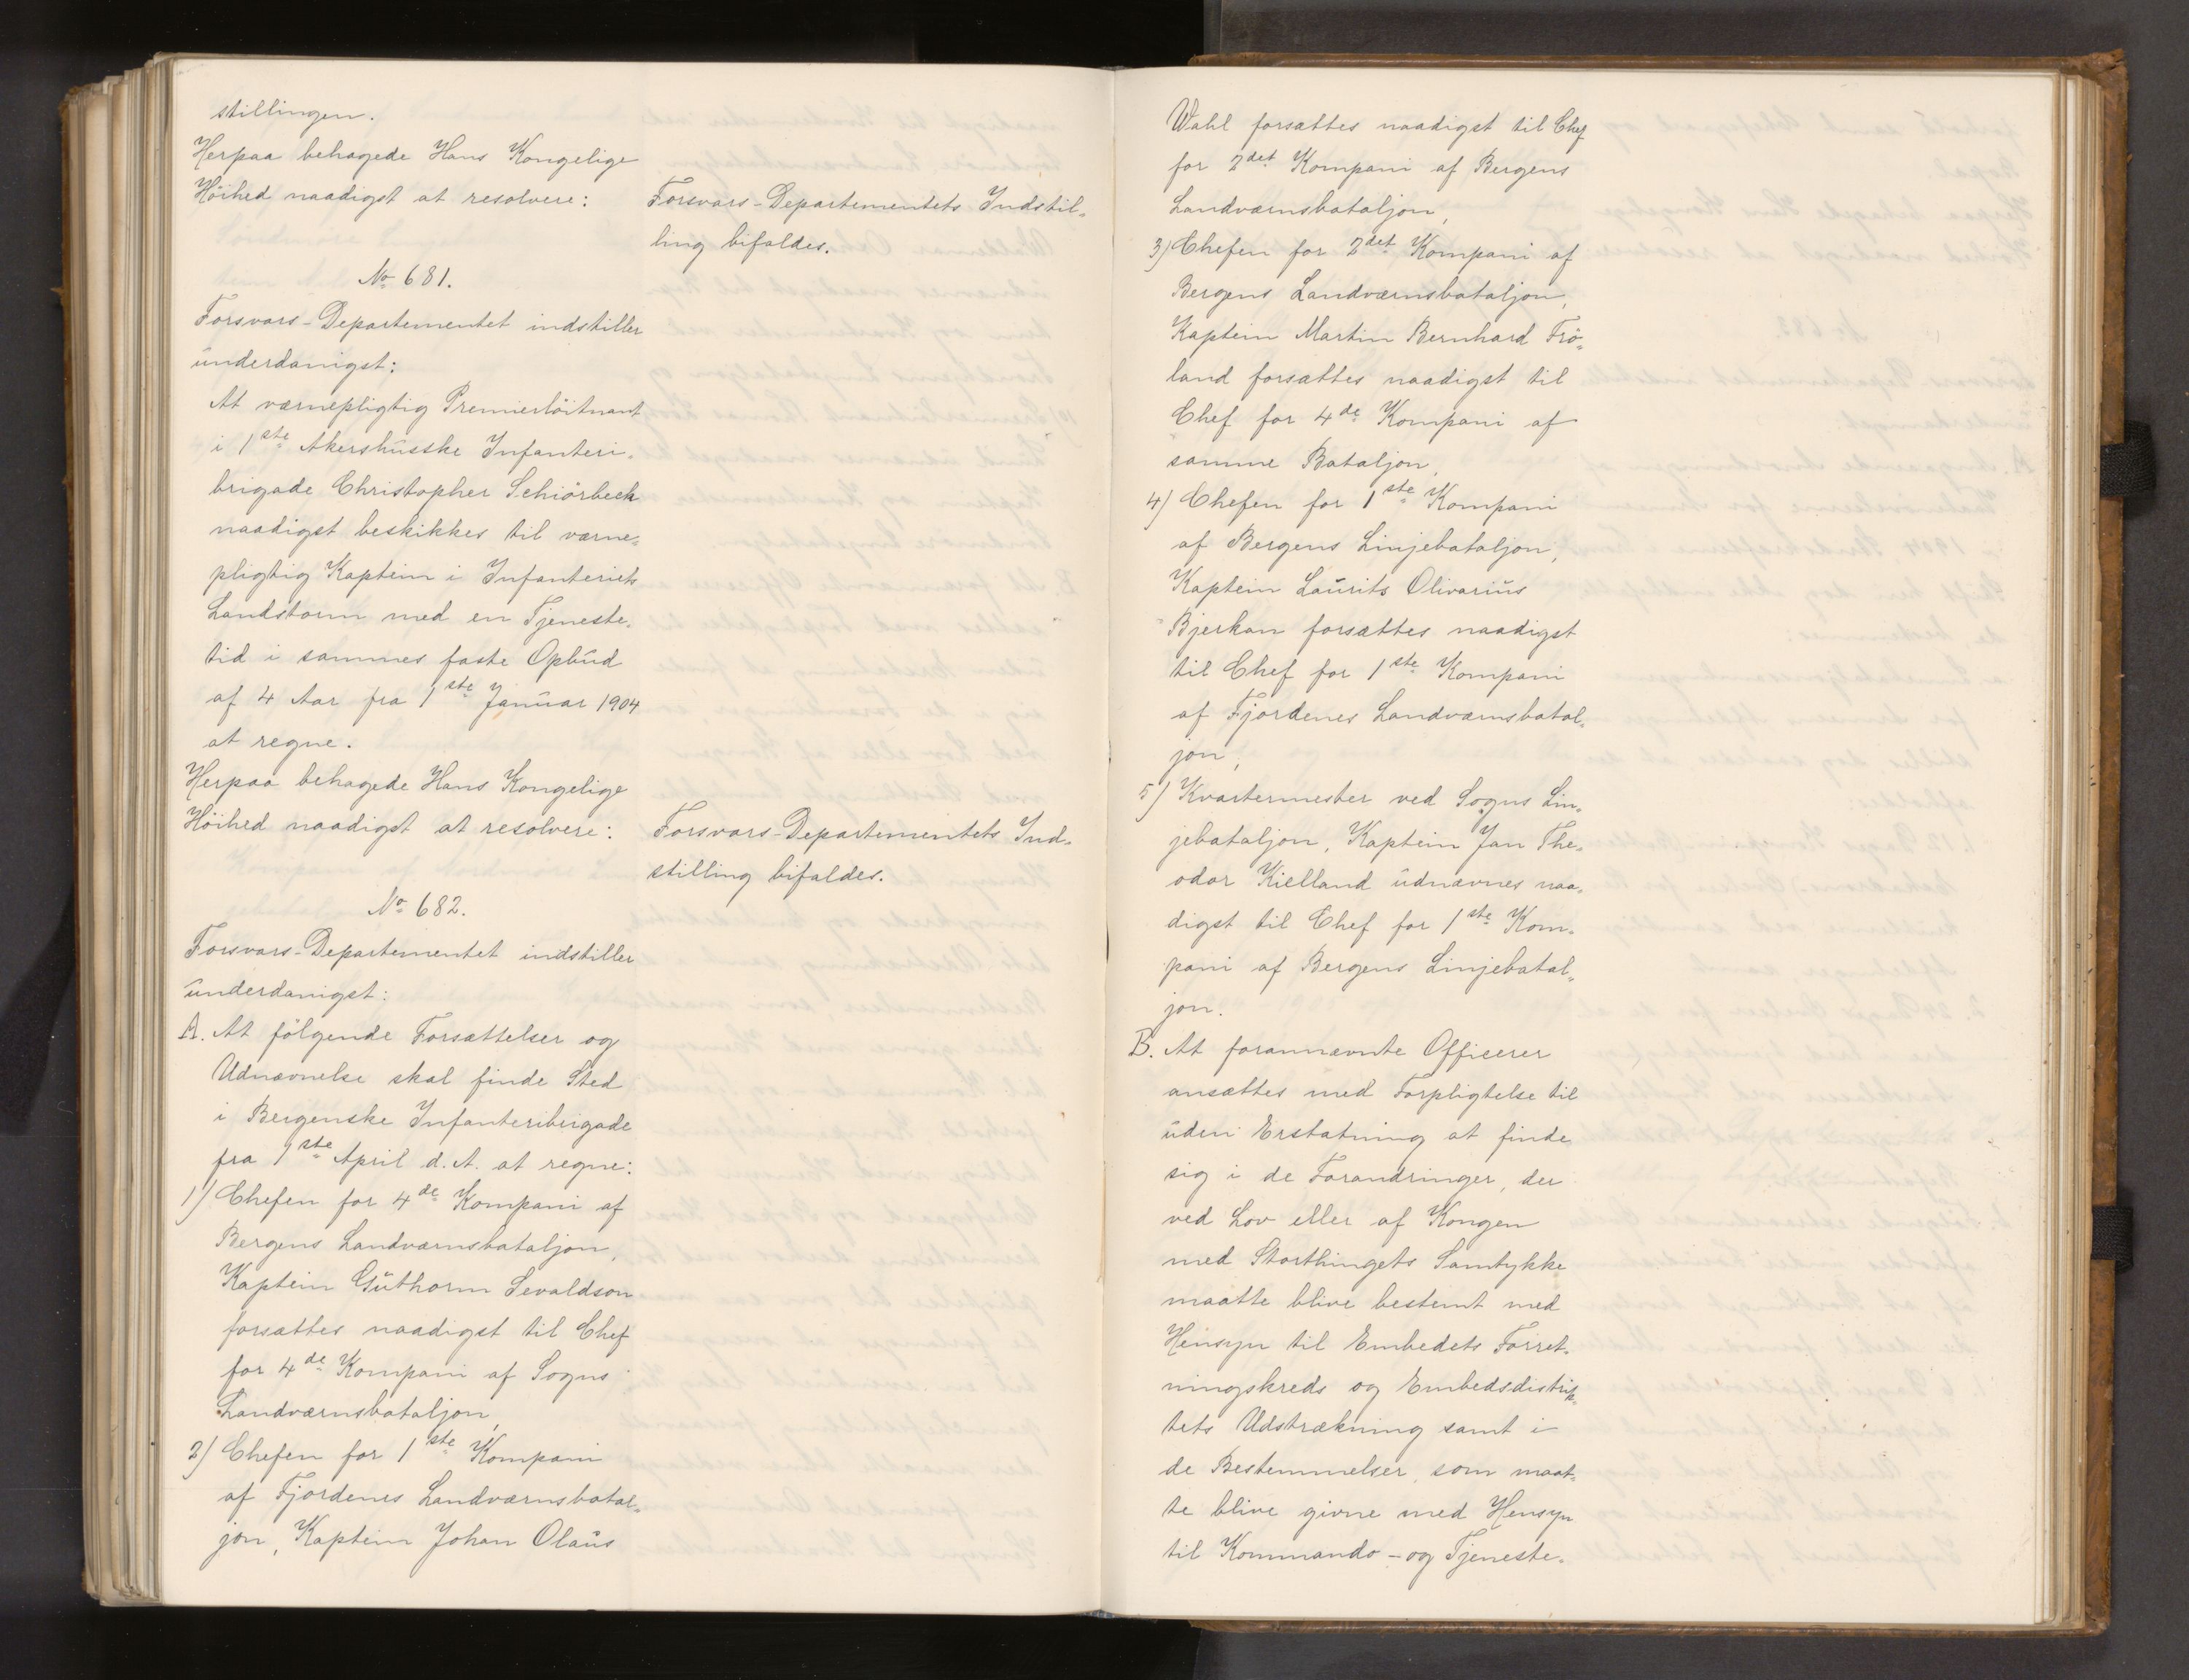 stillingen.
Herpaa behagede Hans Kongelige
Höihed naadigst at resolvere:
Forsvars-Departementets Indstil-
ling bifaldes.
No 681.
Forsvars-Departementet indstiller
underdanigst:
At værnepligtig Premierlöitnant
i 1ste Akershusske Infanteri-
brigade Christopher Schiörbeck
naadigst beskikkes til værne-
pligtig Kaptein i Infanteriets
Landstorm med en Tjeneste-
tid i sammes faste Opbud
af 4 Aar fra 1ste Januar 1904
at regne.
Herpaa behagede Hans Kongelige
Höihed naadigst at resolvere:
Forsvars-Departementets Ind-
stilling bifaldes.
No 682.
Forsvars-Departementet indstiller
underdanigst:
A. At fölgende Forsættelser og
Udnævnelse skal finde Sted
i Bergenske Infanteribrigade
fra 1ste April d. A. at regne:
1) Chefen for 4de Kompani af
Bergens Landværnsbataljon,
Kaptein Guthorm Sevaldson
forsættes naadigst til Chef
for 4de Kompani af Sogns
Landværnsbataljon,
2) Chefen for 1ste Kompani
af Fjordenes Landværnsbatal-
jon, Kaptein Johan Olaus
Wahl forsættes naadigst til Chef
for 2det Kompani af Bergens
Landværnsbataljon,
3) Chefen for 2det Kompani af
Bergens Landværnsbataljon,
Kaptein Martin Bernhard Frö-
land forsættes naadigst til
Chef for 4de Kompani af
samme Bataljon,
4) Chefen for 1ste Kompani
af Bergens Linjebataljon,
Kaptein Laurits Olivarius
Bjerkan forsættes naadigst
til Chef for 1ste Kompani
af Fjordenes Landværnsbatal-
jon,
5) Kvartermester ved Sogns Lin-
jebataljon, Kaptein Jan The-
odor Kielland udnævnes naa-
digst til Chef for 1ste Kom-
pani af Bergens Linjebatal-
jon.
B. At forannævnte Officerer
ansættes med Forpligtelse til
uden Erstatning at finde
sig i de Forandringer, der
ved Lov eller af Kongen
med Storthingets Samtykke
maatte blive bestemt med
Hensyn til Embedets Forret-
ningskreds og Embedsdistrik-
tets Udstrækning samt i
de Bestemmelser, som maat-
te blive givne med Hensyn
til Kommando- og Tjeneste-